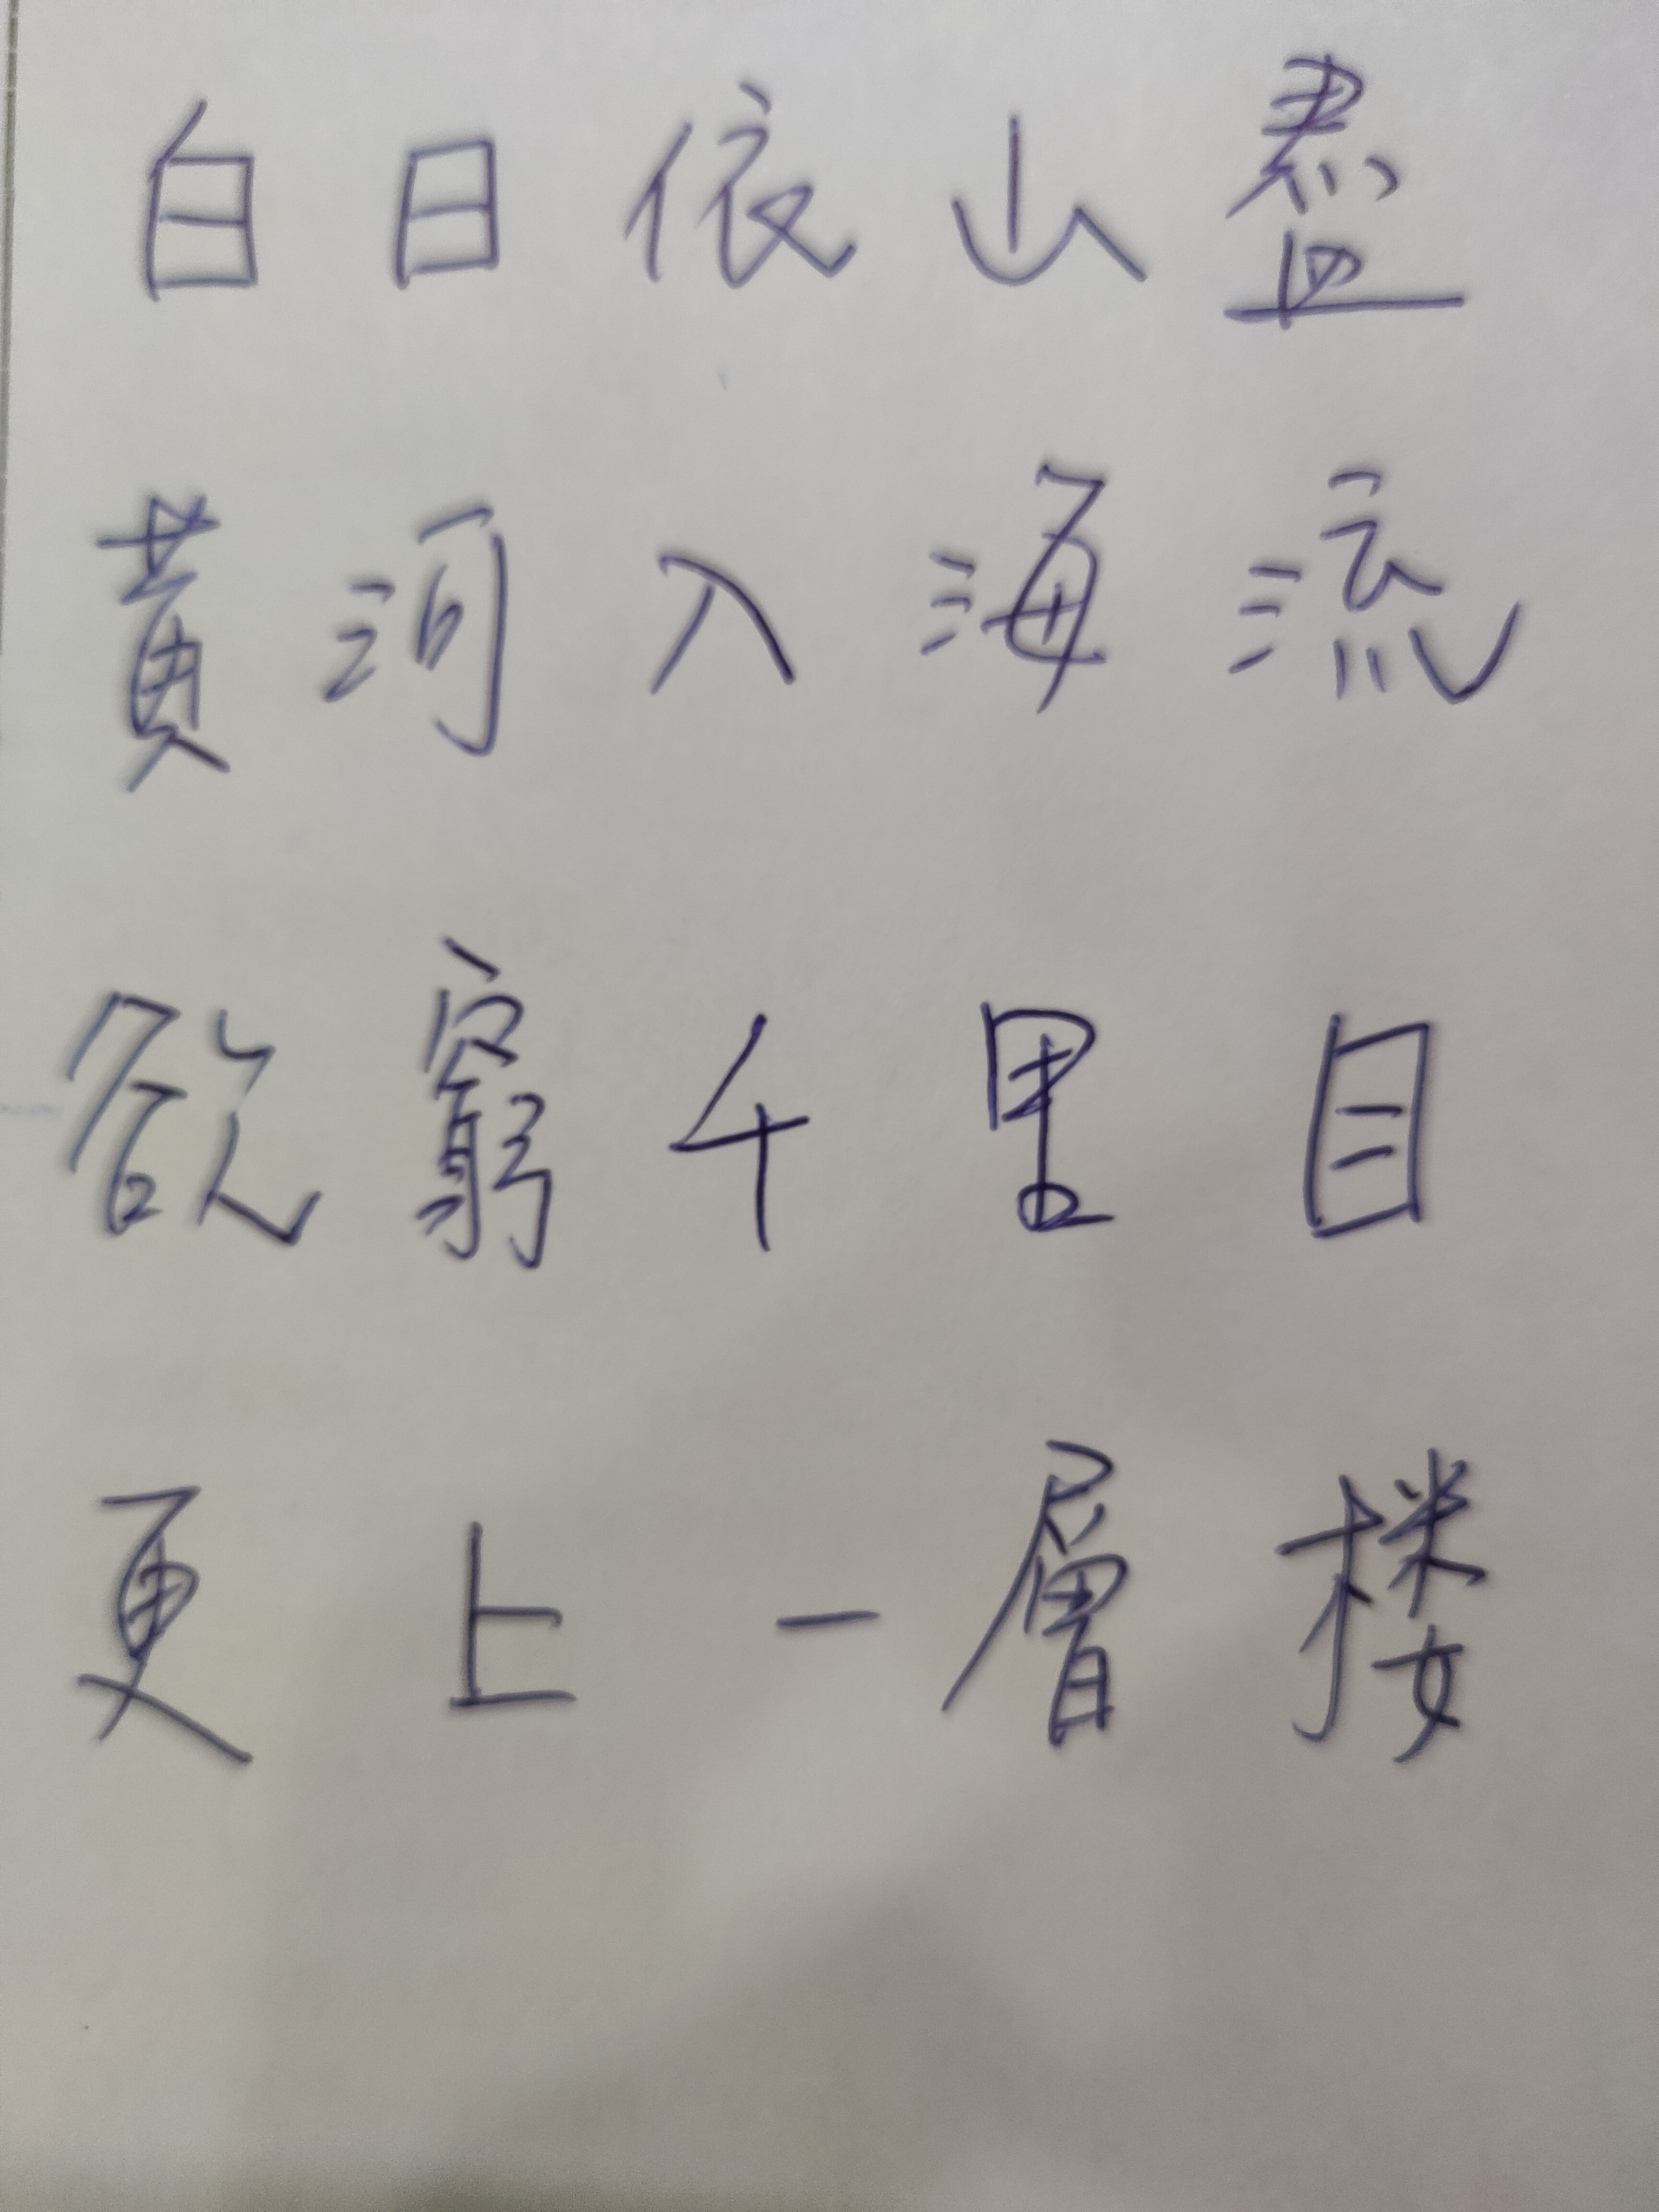 白日依山盡
黄河入海流
欲窮千里目
更上一層楼